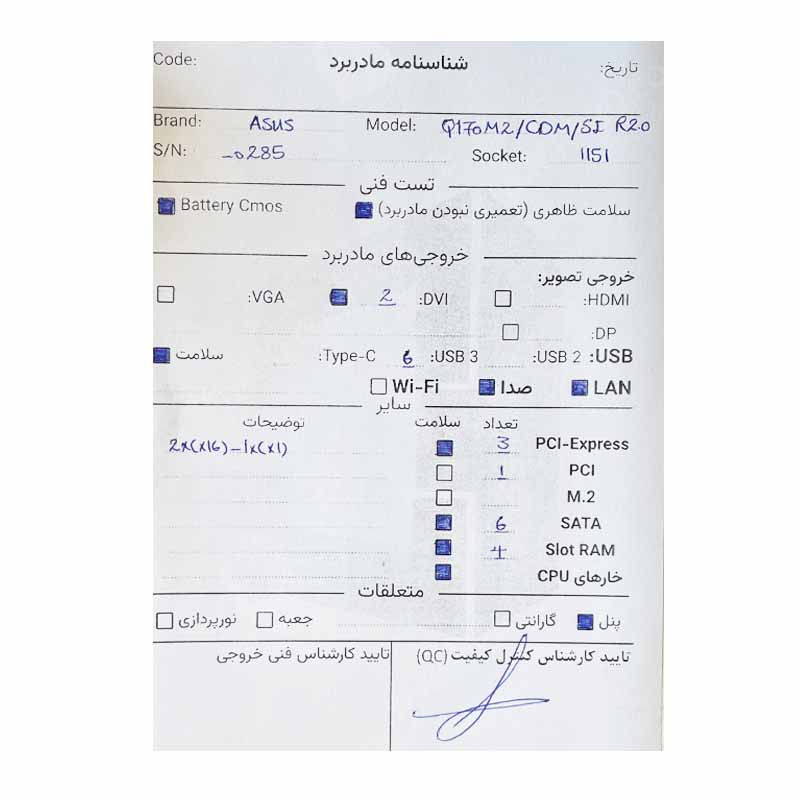 Code: شناسنامه مادربرد تاریخ:
Brand: ASUS Model: Q170M2/CDM/SI R2.0
S/N: -0285 Socket: 1151
تست فنی
سلامت ظاهری (تعمیری نبودن مادربرد) Battery Cmos
خروجی‌های مادربرد
خروجی تصویر:
HDMI: DVI: 2 VGA:
DP:
USB: USB 2: USB 3: 6 Type-C: سلامت
LAN صدا Wi-Fi
سایر
تعداد سلامت توضیحات
PCI-Express 3 2x(x16)-1x(x1)
PCI 1
M.2
SATA 6
Slot RAM 4
خارهای CPU
متعلقات
پنل گارانتی جعبه نورپردازی
تایید کارشناس کنترل کیفیت (QC) تایید کارشناس فنی خروجی